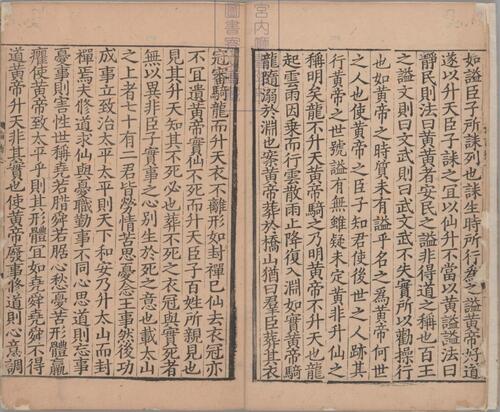 如謚臣子所誄列也誄生時所行為之謚黃帝好道
遂以升天臣子誄之宜以仙升不當以黃謚謚法曰
靜民則法曰黃黃者安民之謚非得道之稱也百王
之謚文則曰文武則曰武文武不失實所以勸操行
也如黃帝之時質未有謚乎名之為黃帝何世
之人也使黃帝之臣子知君使後世之人跡其
行黃帝之世號謚有無雖疑未定黃非升仙之
稱明矣龍不升天黃帝騎之乃明黃帝不升天也龍
起雲雨因乗而行雲散雨止降復入淵如實黃帝騎
龍隨溺於淵也案黃帝葬於橋山猶曰羣臣葬其衣
冠審騎龍而升天衣不離形如封禪已仙去衣冠亦
不宜遺黃帝實仙不死而升天臣子百姓所親見也
見其升天知其不死必也葬不死之衣冠與實死者
無以異非臣子實事之心别生於死之意也載太山
之上者七十有二君皆勞情苦思憂念王事然後功
成事立致治太平太平則天下和安乃升太山而封
禪焉夫修道求仙與憂職勤事不同心思道則忘事
憂事則害性世稱堯若腊舜若腒心愁憂苦形體羸
癯使黃帝致太平乎則其形體宜如堯舜堯舜不得
道黃帝升天非其實也使黃帝廢事修道則心意調
宮内廳
圖書